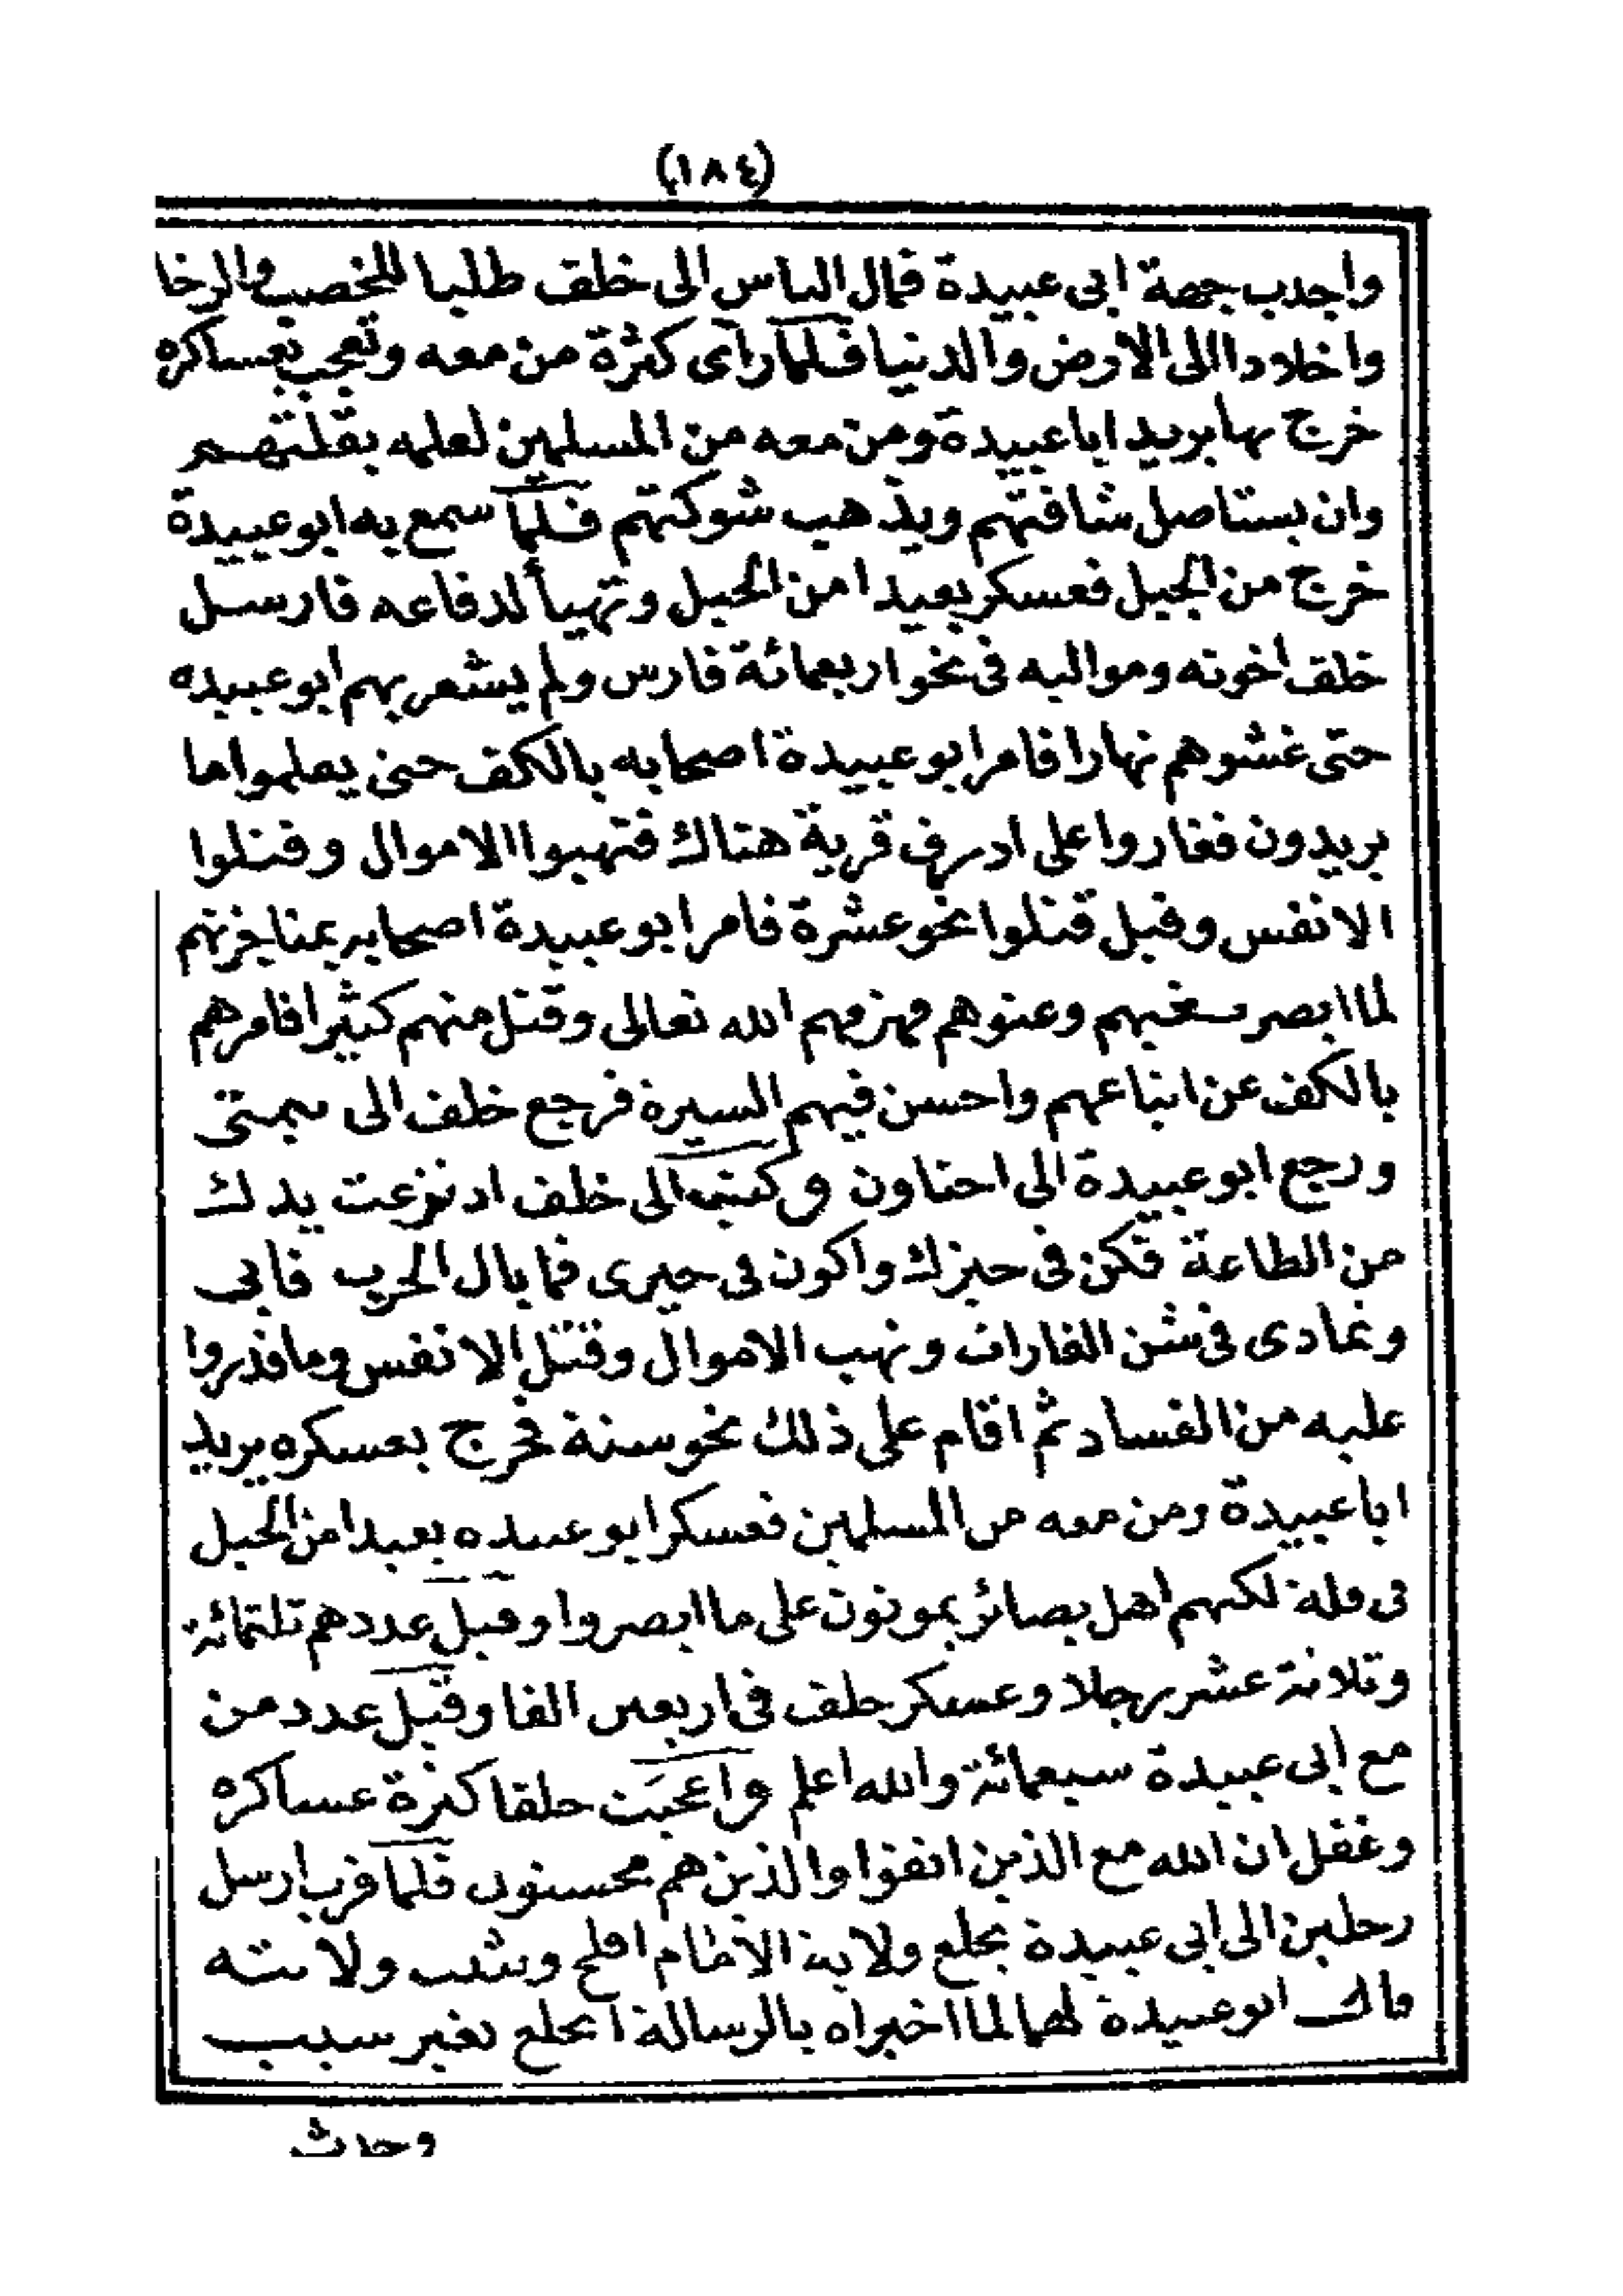 (١٨٤)
واجدب جهة ابى عبيدة فمال الناس الى خلف طلبا للخصب والرخا
واخلادا الى الارض والدنيا فلما رآى كثرة من معه وتعجب بعساكره
خرج بها يريد ابا عبيدة ومن معه من المسلمين لعلمه بقلتهم
وان يستاصل شافتهم ويذهب شوكتهم فلما سمع به ابو عبيدة
خرج من الجبل فعسكر بعيدا من الجبل وتهيأ لدفاعه فارسل
خلف اخوته ومواليه فى نحو اربعمائة فارس ولم يشعر بهم ابو عبيده
حتى غشوهم نهارا فامر ابو عبيدة اصحابه بالكف حتى يعلموا ما
يريدون فغاروا على ادرف قرية هناك فنهبوا الاموال وقتلوا
الانفس وقيل قتلوا نحو عشرة فامر ابو عبيدة اصحابه بمناجزتهم
لما ابصر بغيهم وعتوهم فهزمهم الله تعالى وقتل منهم كثيرا فامرهم
بالكف عن اتباعهم واحسن فيهم السيرة فرجع خلف الى تيمتى
ورجع ابو عبيدة الى اجناون وكتب الى خلف اد نزعت يدك
من الطاعة فكن فى حيزك واكون فى حيزى فما بال الحرب فابى
وتمادى فى شن الغارات ونهب الاموال وقتل الانفس وما قدروا
عليه من الفساد ثم اقام على ذلك نحو سنة فخرج بعسكره يريد
ابا عبيدة ومن معه من المسلمين فعسكر ابو عبيده بعيدا من الجبل
فى قلة لكنهم اهل بصائر يموتون على ما ابصروا وقيل عددهم ثلثمائة
وثلاثة عشر رجلا وعسكر خلف فى اربعين الفا وقيل عدد من
مع ابى عبيدة سبعمائة والله اعلم واعجبت خلفا كثرة عساكره
وغفل ان الله مع الذين اتقوا والذين هم محسنون فلما قرب ارسل
رجلين الى ابى عبيدة بخلع ولاية الامام افلح وولايته
قال ابو عبيدة لهما لما اخبراه بالرسالة أنخلع بغير سبب
وحدث